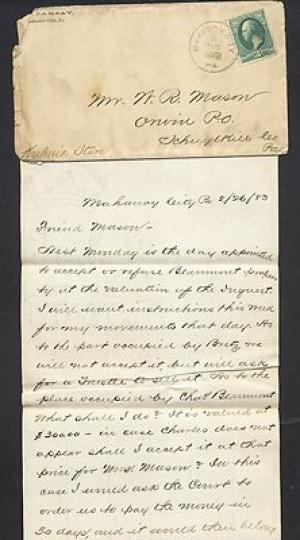 RAMSAY,
Mr. W. R. Mason
Orwin P.O.
Schuylkill Co
Pa
Store
Mahanoy City Pa 2/26/83
Friend Mason -
Next Monday is the day appointed
to accept or refuse Beaumont proper
ty at the valuation of the Inquest.
I will want instructions this week
for my movements that day. As
to the part occupied by Bretz we
will not accept it, but will ask
for a Trustee to sell it. As to the
place occupied by Chas Beaumont
What shall I do? It is valued at
$3000 - in case Charles does not
appear shall I accept it at that
price for Mrs. Mason? In this
case I would ask the Court to
order us to pay the money in
30 days, and it would then belong